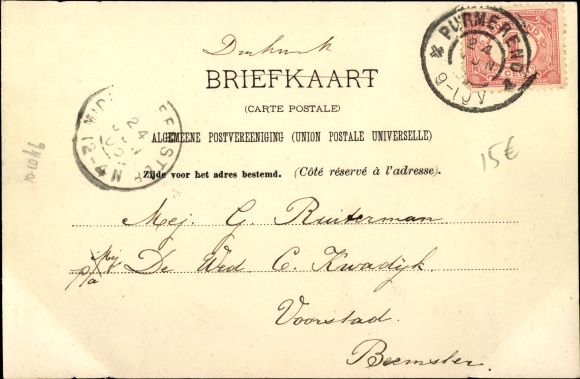 Drukwerk
BRIEFKAART
(CARTE POSTALE)
ALGEMEENE POSTVEREENIGING (UNION POSTALE UNIVERSELLE)
Zijde voor het adres bestemd. (Côté réservé à l'adresse).
PURMEREND
24
9-10V
24
N 8-12
15€
Mej. G. Ruiterman
p/a Mej De Wed C. Kwadijk
Voorstad.
Beemster.